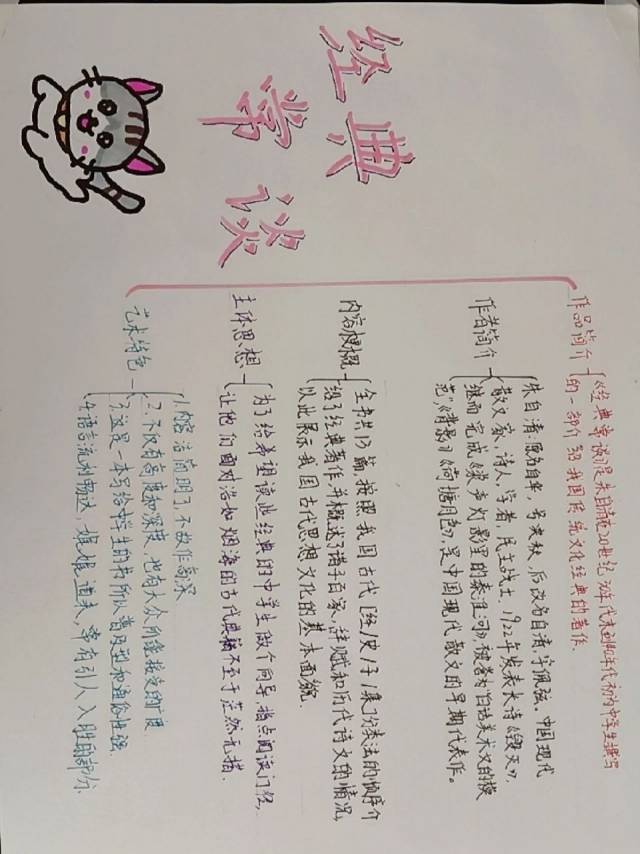 经典
常谈
作品简介
《经典常谈》是朱自清在20世纪30年代末到40年代初为中学生撰写
的一部介绍我国传统文化经典的著作
作者简介
朱自清:原名自华,号秋秋,后改名自清,字佩弦。中国现代
散文家、诗人、学者、民主战士。1922年发表长诗《毁灭》,
继而完成《桨声灯影里的秦淮河》,被誉为"白话美术文的模
范"《背影》《荷塘月色》,是中国现代散文的早期代表作。
内容梗概
全书共13篇,按照我国古代[经/史/子/集]分类法的顺序介
绍了经典著作,并概述了诸子百家,辞赋和历代诗文的情况,
以此展示我国古代思想文化的基本面貌。
主体思想
为了给希望读些经典的中学生做个向导,指点阅读门径,
让他们面对浩如烟海的古代典籍不至于茫然无措。
艺术特色
1.内容活简明了,不故作高深
2.不仅有高度和深度,也有大众所能接受的广度
3.这是一本写给中学生的书,所以普及型和通俗性强
4.语言流利畅达,娓娓道来,富有引人入胜的部分.